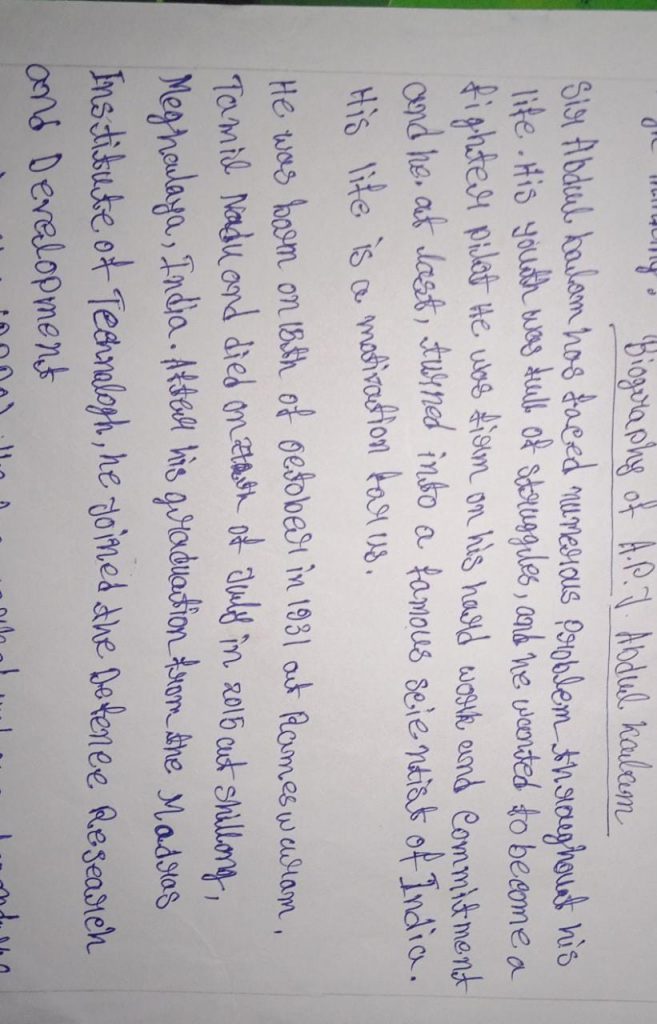 Biography of A.P.J. Abdul Kalam
Sir Abdul Kalam has faced numerous problem throughout his
life. His youth was full of struggles, and he wanted to become a
fighter pilot He was firm on his hard work and commitment
and he. at last, turned into a famous scientist of India.
His life is a motivation for us.
He was born on 15th of october in 1931 at Rameswaram,
Tamil Nadu and died on of July in 2015 at Shillong,
Meghalaya, India. After his graduation from the Madras
Institute of Technologh, he joined the Defence Research
and Development